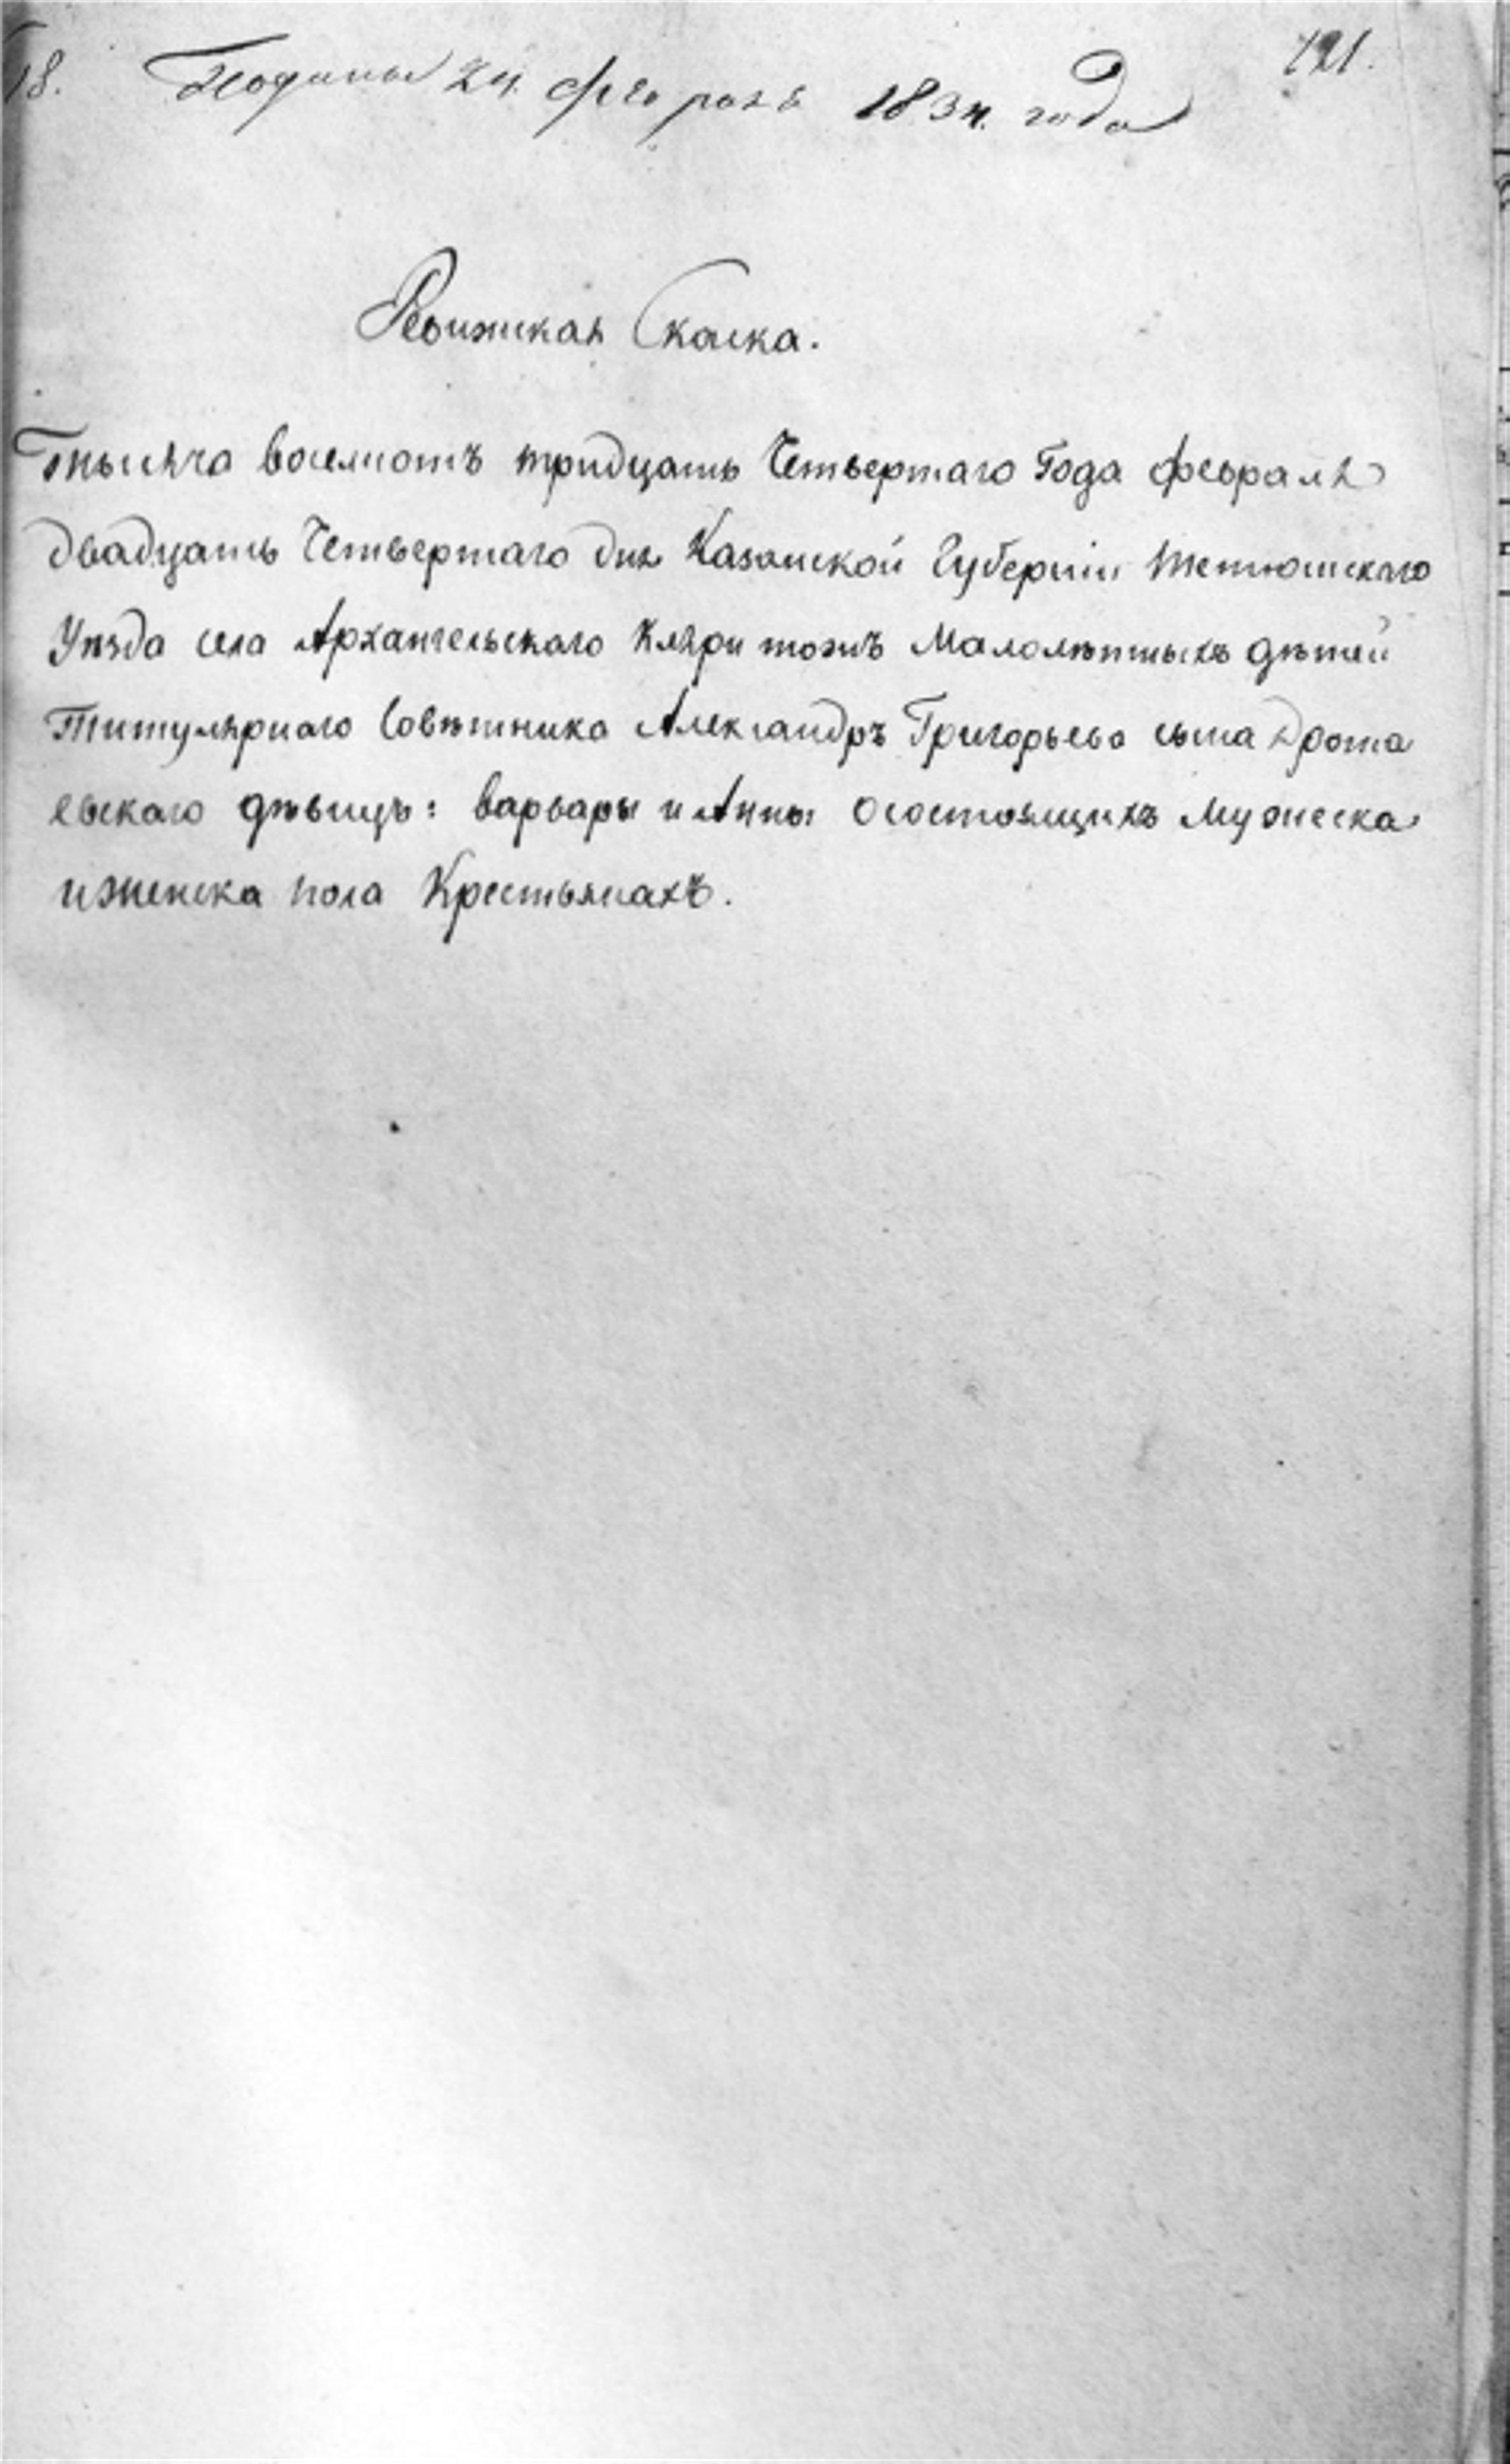 18. Подана 24. февраля 1834. года 121.
Ревижская Скаска.
Тысяча восемьсотъ тридцать Четвертаго Года февраля
двадцать Четвертаго дня Казанской Губернии Тетюшскаго
Уѣзда села Архангельскаго Кляри тожъ Малолѣтныхъ дѣтей
Титулярнаго Совѣтника Александръ Григорьева сына
евскаго дѣвицъ: варвары и Анны осостоящихъ Мужеска
и женска пола Крестьянахъ.